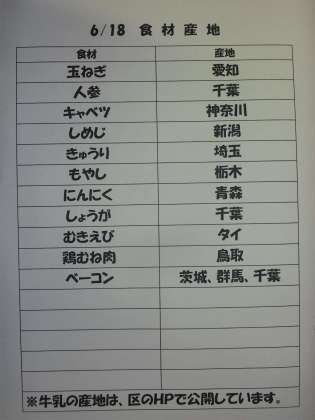 6/18 食材産地
食材 産地
玉ねぎ 愛知
人参 千葉
キャベツ 神奈川
しめじ 新潟
きゅうり 埼玉
もやし 栃木
にんにく 青森
しょうが 千葉
むきえび タイ
鶏むね肉 鳥取
ベーコン 茨城、群馬、千葉
※牛乳の産地は、区のHPで公開しています。